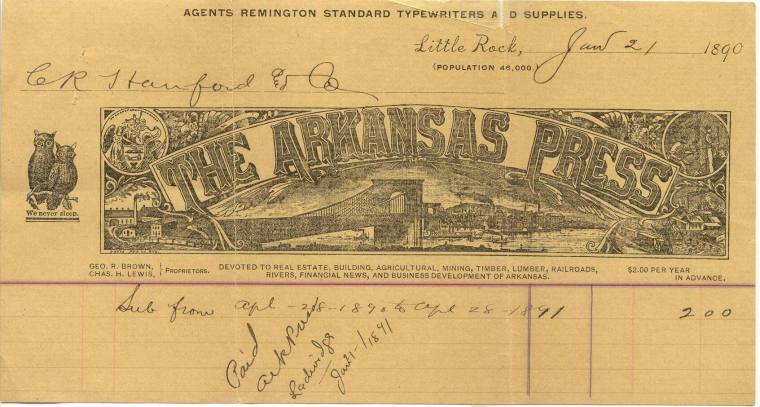 AGENTS REMINGTON STANDARD TYPEWRITERS AND SUPPLIES.
Little Rock, Jan 21 1890
(POPULATION 46,000.)
C R Hanford & Co
THE ARKANSAS PRESS
We never sleep.
GEO. R. BROWN,
CHAS. H. LEWIS,
PROPRIETORS.
DEVOTED TO REAL ESTATE, BUILDING, AGRICULTURAL, MINING, TIMBER, LUMBER, RAILROADS,
RIVERS, FINANCIAL NEWS, AND BUSINESS DEVELOPMENT OF ARKANSAS.
$2.00 PER YEAR
IN ADVANCE.
Sub from Apl - 28 - 1890 to Apl 28 - 1891 2 00
Paid
Ark Press
Jan 21 - 1891